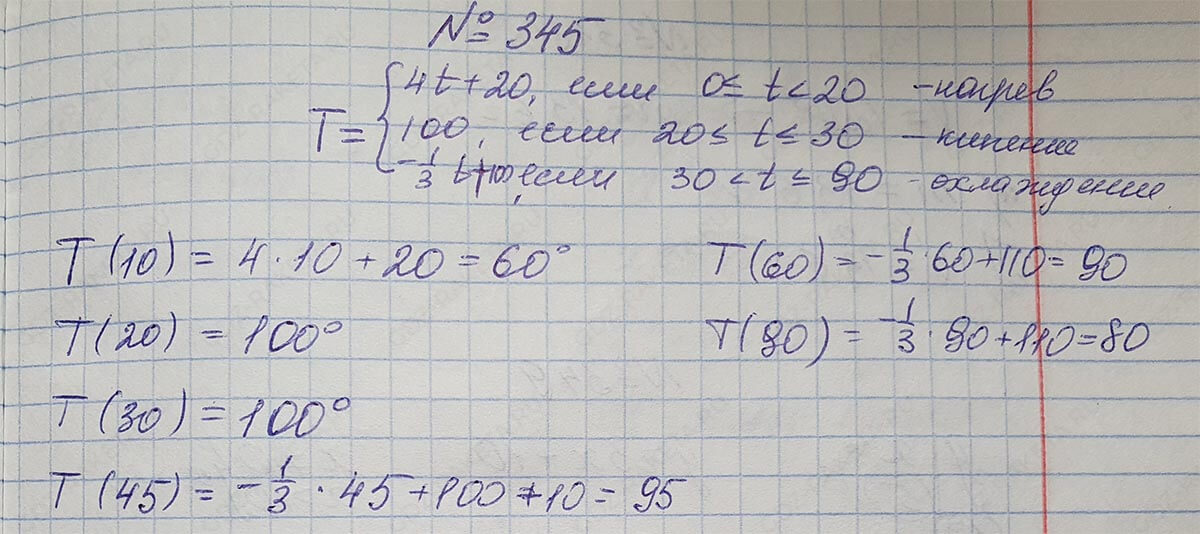 № 345
T = { 4t+20, если 0 ≤ t < 20 - нагрев
100, если 20 ≤ t ≤ 30 - кипение
-1/3 t+110, если 30 < t ≤ 90 - охлаждение.
T(10) = 4·10+20 = 60° T(60) = -1/3·60+110 = 90
T(20) = 100° T(90) = -1/3·90+110 = 80
T(30) = 100°
T(45) = -1/3·45+100+10 = 95